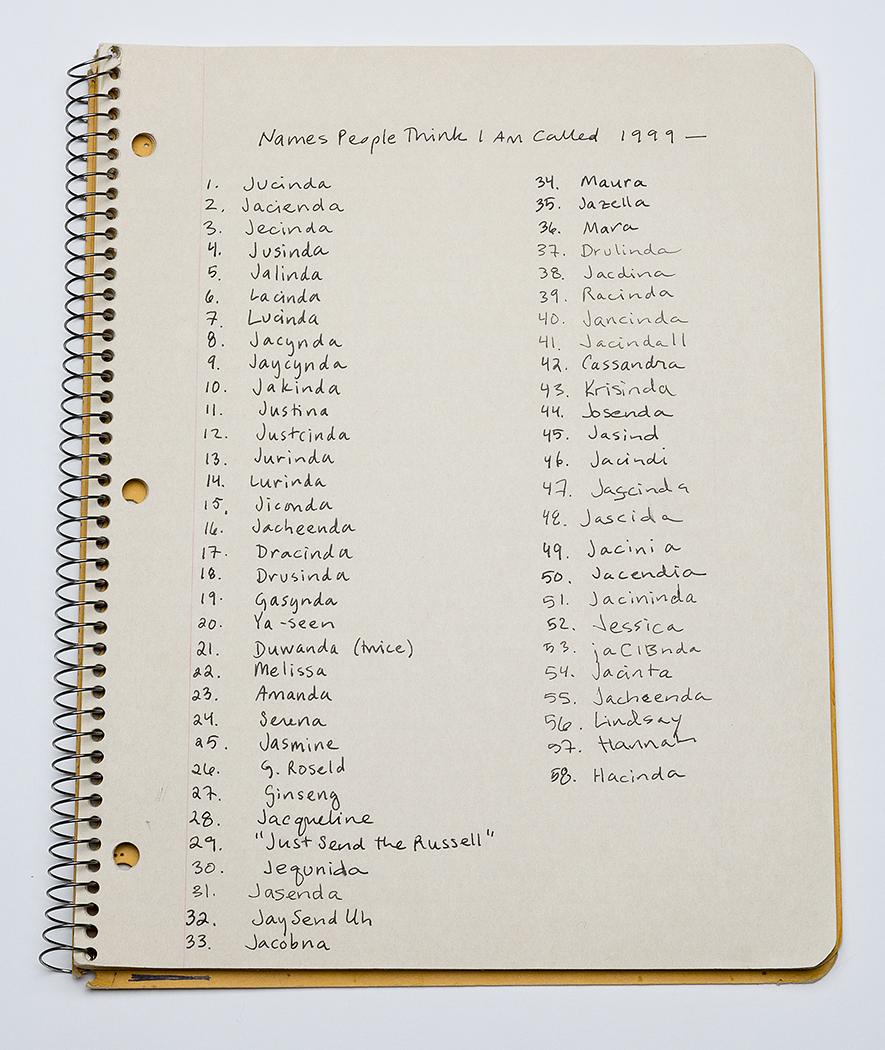 Names People Think I Am Called 1999 —
1. Jucinda
2. Jacienda
3. Jecinda
4. Jusinda
5. Jalinda
6. Lacinda
7. Lucinda
8. Jacynda
9. Jaycynda
10. Jakinda
11. Justina
12. Justcinda
13. Jurinda
14. Lurinda
15. Jiconda
16. Jacheenda
17. Dracinda
18. Drusinda
19. Gasynda
20. Ya-seen
21. Duwanda (twice)
22. Melissa
23. Amanda
24. Serena
25. Jasmine
26. G. Roseld
27. Ginseng
28. Jacqueline
29. "Just Send the Russell"
30. Jequnida
31. Jasenda
32. Jay Send Uh
33. Jacobna
34. Maura
35. Jazella
36. Mara
37. Drulinda
38. Jacdina
39. Racinda
40. Jancinda
41. Jacindall
42. Cassandra
43. Krisinda
44. Josenda
45. Jasind
46. Jacindi
47. Jagcinda
48. Jascida
49. Jacinia
50. Jacendia
51. Jacininda
52. Jessica
53. jaCIBnda
54. Jacinta
55. Jacheenda
56. Lindsay
57. Hannah
58. Hacinda